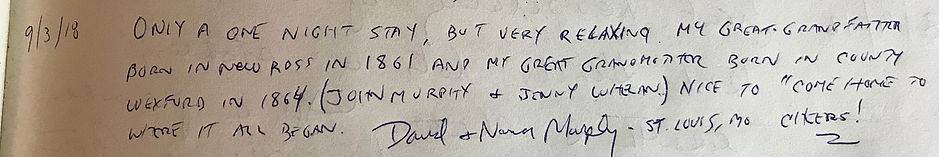 9/3/18 ONLY A ONE NIGHT STAY, BUT VERY RELAXING. MY GREAT-GRANDFATHER
BORN IN NEW ROSS IN 1861 AND MY GREAT GRANDMOTHER BORN IN COUNTY
WEXFORD IN 1864. (JOHN MURPHY + JENNY WHELAN.) NICE TO "COME HOME TO
WHERE IT ALL BEGAN. David + Nancy Murphy - ST. LOUIS, MO